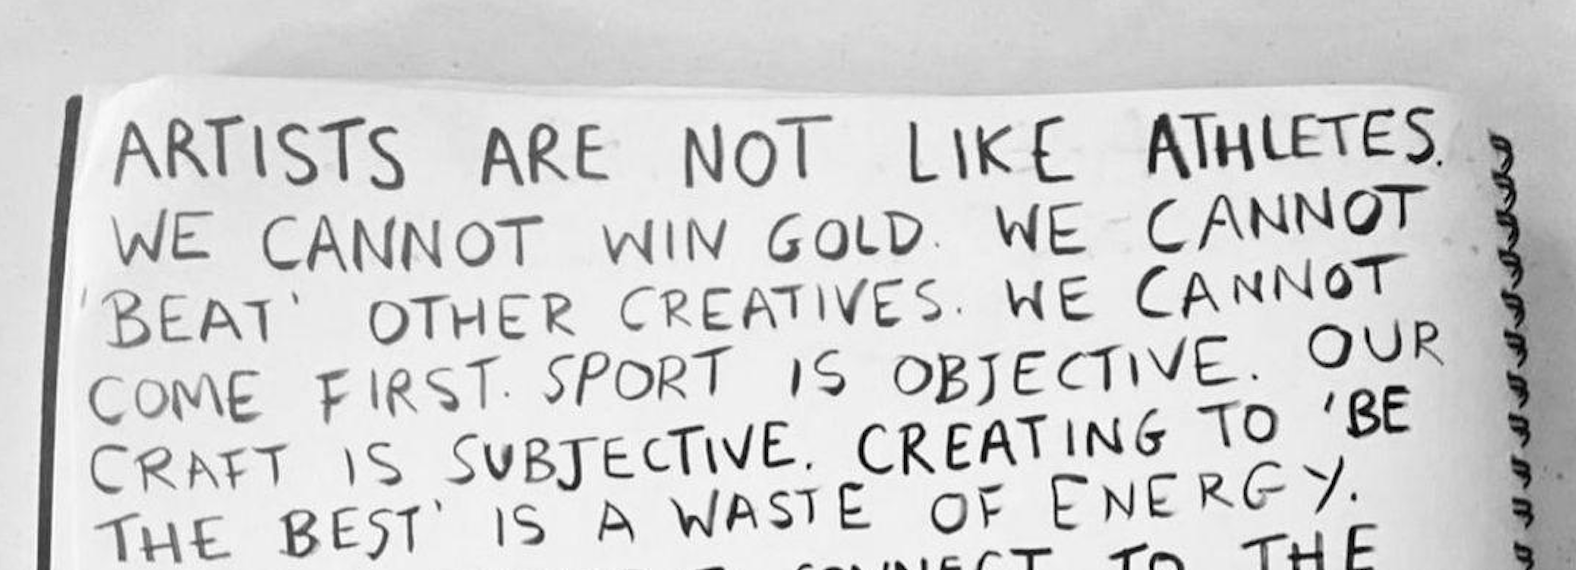 ARTISTS ARE NOT LIKE ATHLETES.
WE CANNOT WIN GOLD. WE CANNOT
'BEAT' OTHER CREATIVES. WE CANNOT
COME FIRST. SPORT IS OBJECTIVE. OUR
CRAFT IS SUBJECTIVE. CREATING TO 'BE
THE BEST' IS A WASTE OF ENERGY.
CONNECT TO THE